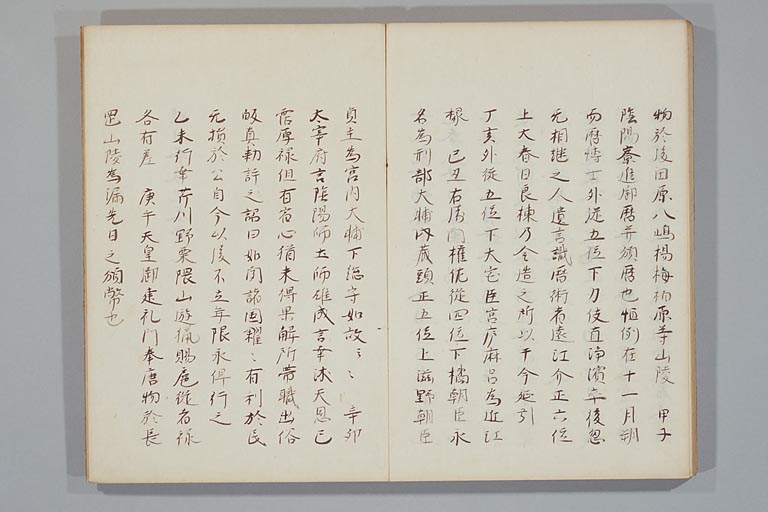 物於後田原八嶋楊梅柏原等山陵 甲子
陰陽寮進御暦并頒暦也恒例在十一月朔
而暦博士外従五位下刀伎直浄濱卒後忽
无相継之人遺言識暦術者遠江介正六位
上大春日良棟乃令造之所以于今延引
丁亥外従五位下大宅臣宮彦麻呂為近江
椽 己丑右衛門權佐從四位下橘朝臣永
名為刑部大輔内蔵頭正五位上滋野朝臣
貞主為宮内大輔下総守如故〻〻 辛卯
太宰府言陰陽師大師雄成言幸沐天恩已
霑厚禄但有宿心猶未得果解所帯職出俗
皈真勅許之詔曰如聞諸国糶〻有利於民
无損於公自今以後不立年限永俾行之
乙未行幸芹川野栗隈山遊猟賜扈従者禄
各有差 庚午天皇御建礼門奉唐物於長
岡山陵為漏先日之頒幣也